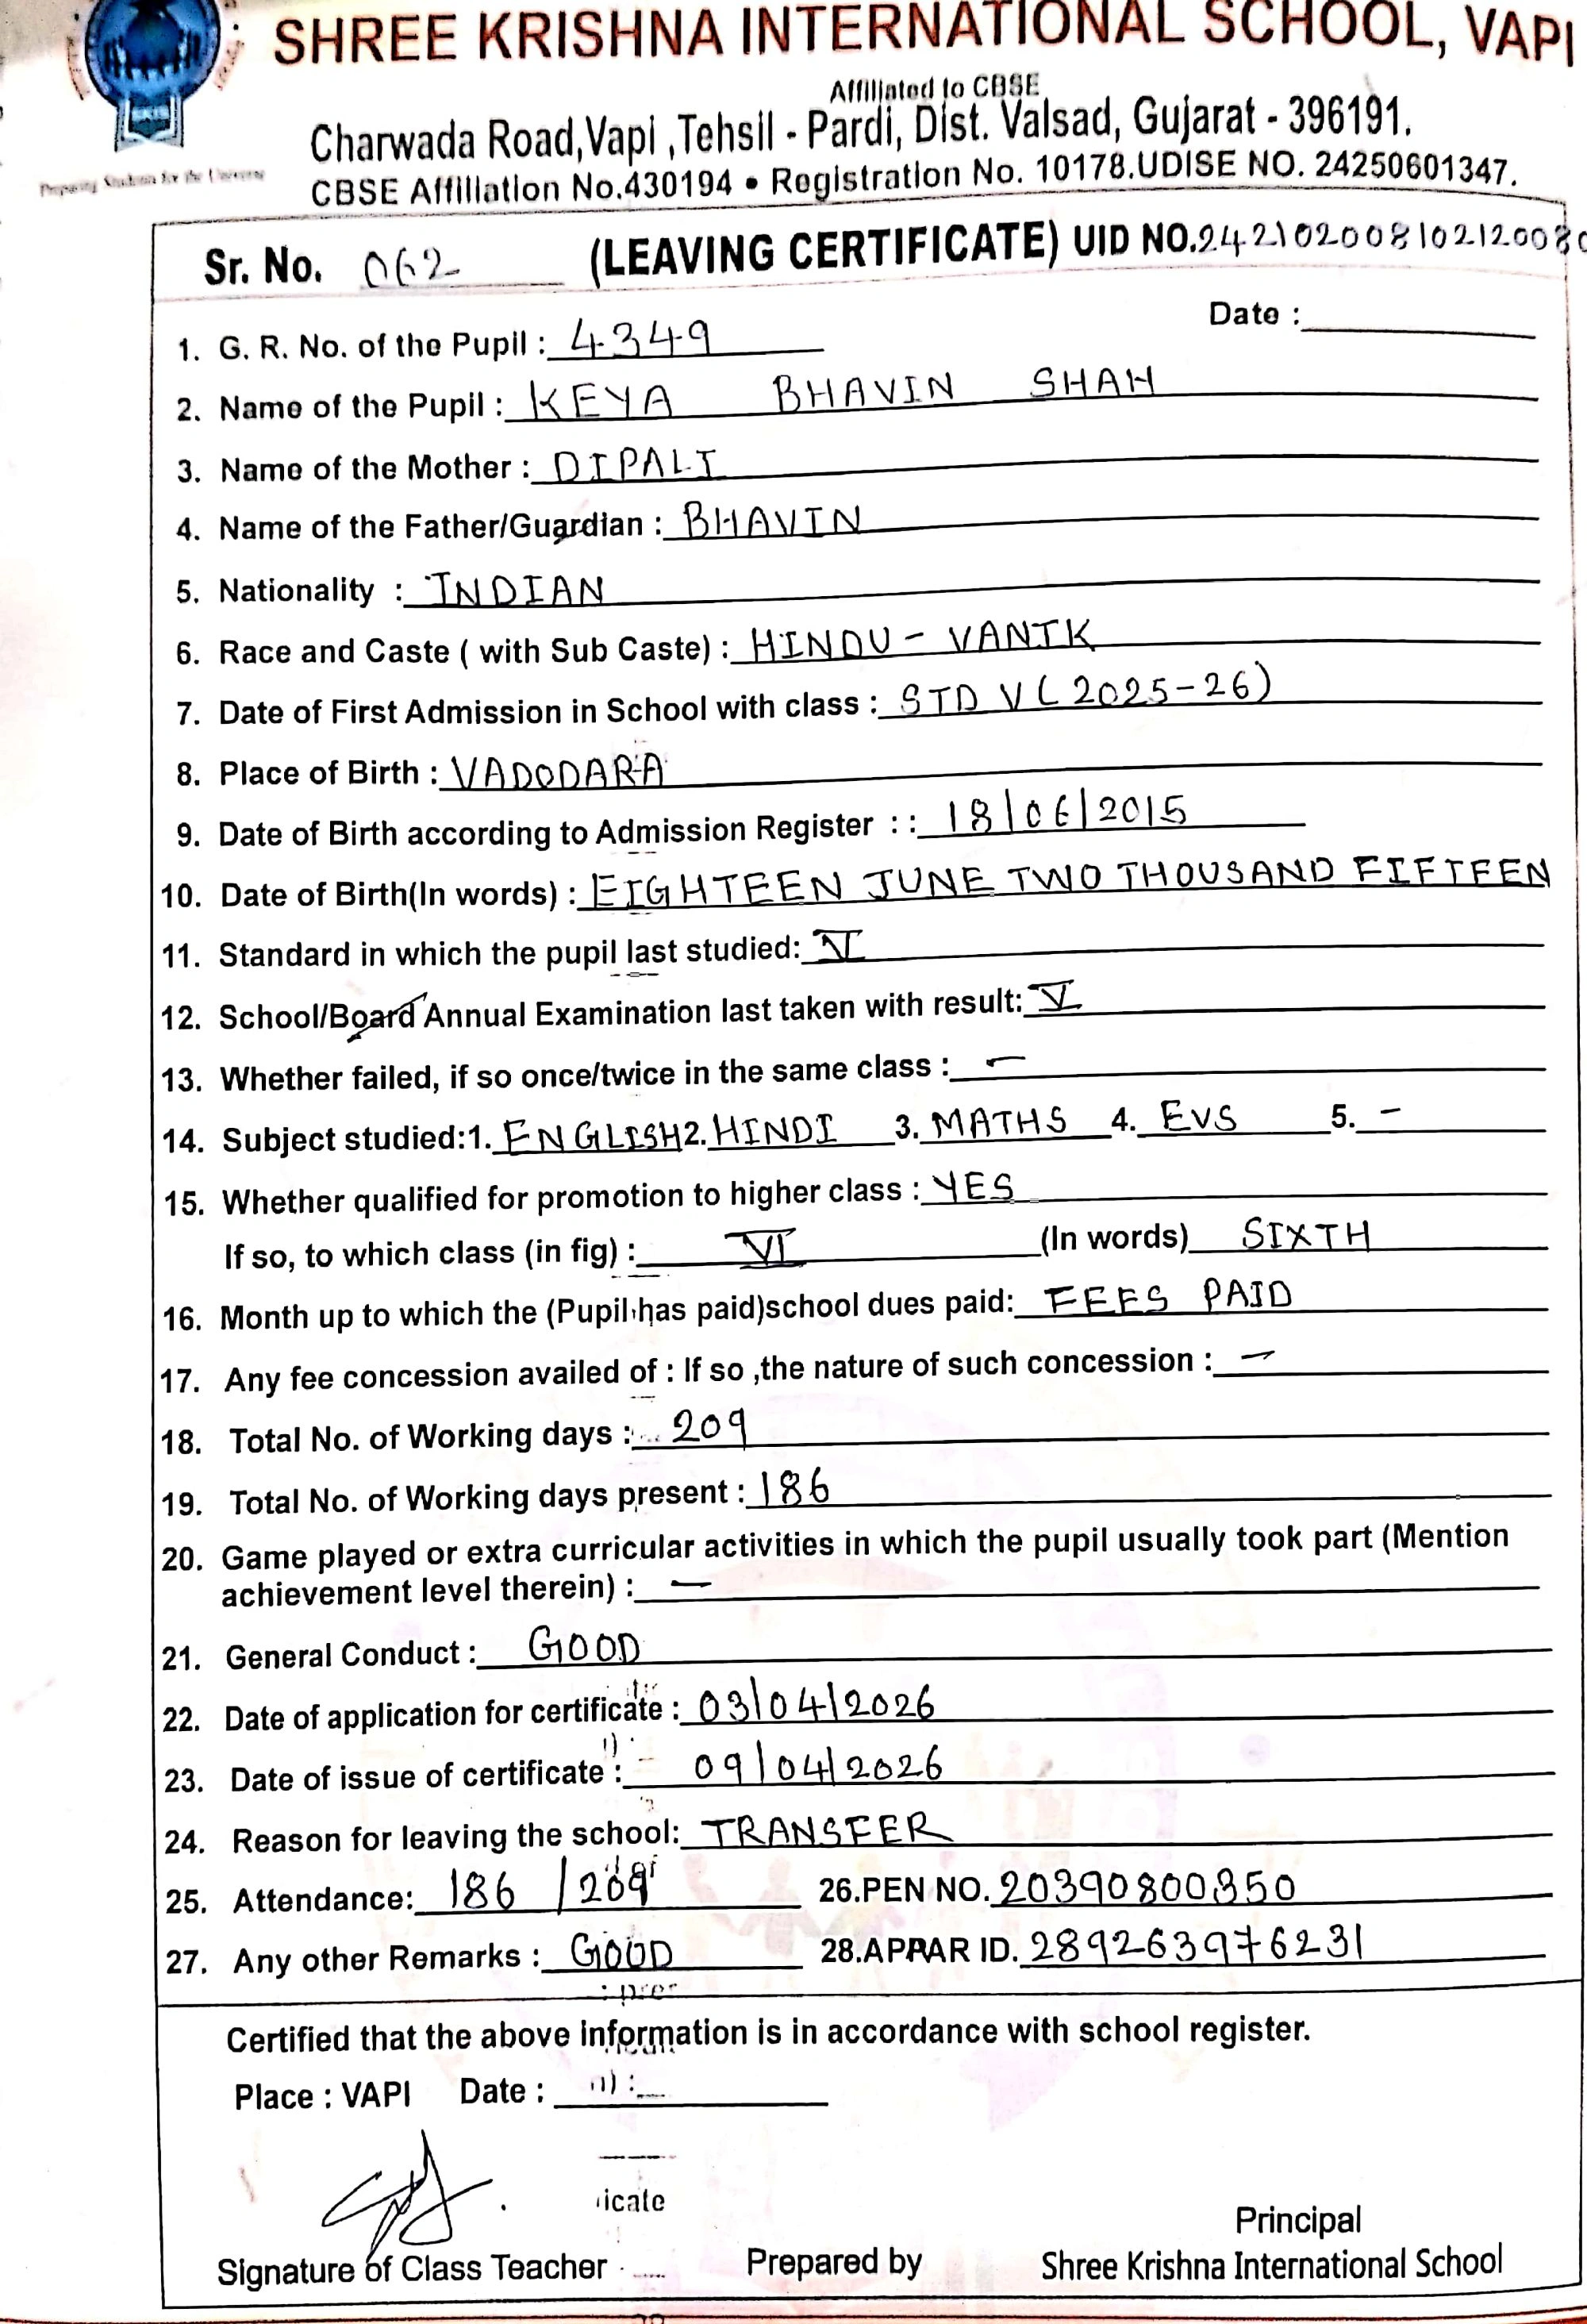 SHREE KRISHNA INTERNATIONAL SCHOOL, VAPI
Affiliated to CBSE
Charwada Road,Vapi ,Tehsil - Pardi, Dist. Valsad, Gujarat - 396191.
Preparing Students for the Universe
CBSE Affiliation No.430194 • Registration No. 10178.UDISE NO. 24250601347.
Sr. No. 062 (LEAVING CERTIFICATE) UID NO.242102008102120080
Date :
1. G. R. No. of the Pupil : 4349
2. Name of the Pupil : KEYA BHAVIN SHAH
3. Name of the Mother : DIPALI
4. Name of the Father/Guardian : BHAVIN
5. Nationality : INDIAN
6. Race and Caste ( with Sub Caste) : HINDU - VANIK
7. Date of First Admission in School with class : STD V ( 2025-26)
8. Place of Birth : VADODARA
9. Date of Birth according to Admission Register : : 18/06/2015
10. Date of Birth(In words) : EIGHTEEN JUNE TWO THOUSAND FIFTEEN
11. Standard in which the pupil last studied: V
12. School/Board Annual Examination last taken with result: V
13. Whether failed, if so once/twice in the same class : -
14. Subject studied:1. ENGLISH 2. HINDI 3. MATHS 4. EVS 5. -
15. Whether qualified for promotion to higher class : YES
If so, to which class (in fig) : VI (In words) SIXTH
16. Month up to which the (Pupil has paid)school dues paid: FEES PAID
17. Any fee concession availed of : If so ,the nature of such concession : -
18. Total No. of Working days : 209
19. Total No. of Working days present : 186
20. Game played or extra curricular activities in which the pupil usually took part (Mention
achievement level therein) : -
21. General Conduct : GOOD
22. Date of application for certificate : 03/04/2026
23. Date of issue of certificate : 09/04/2026
24. Reason for leaving the school: TRANSFER
25. Attendance: 186 / 209 26.PEN NO. 20390800350
27. Any other Remarks : GOOD 28.APAAR ID. 289263976231
Certified that the above information is in accordance with school register.
Place : VAPI Date :
icate
Principal
Signature of Class Teacher Prepared by Shree Krishna International School